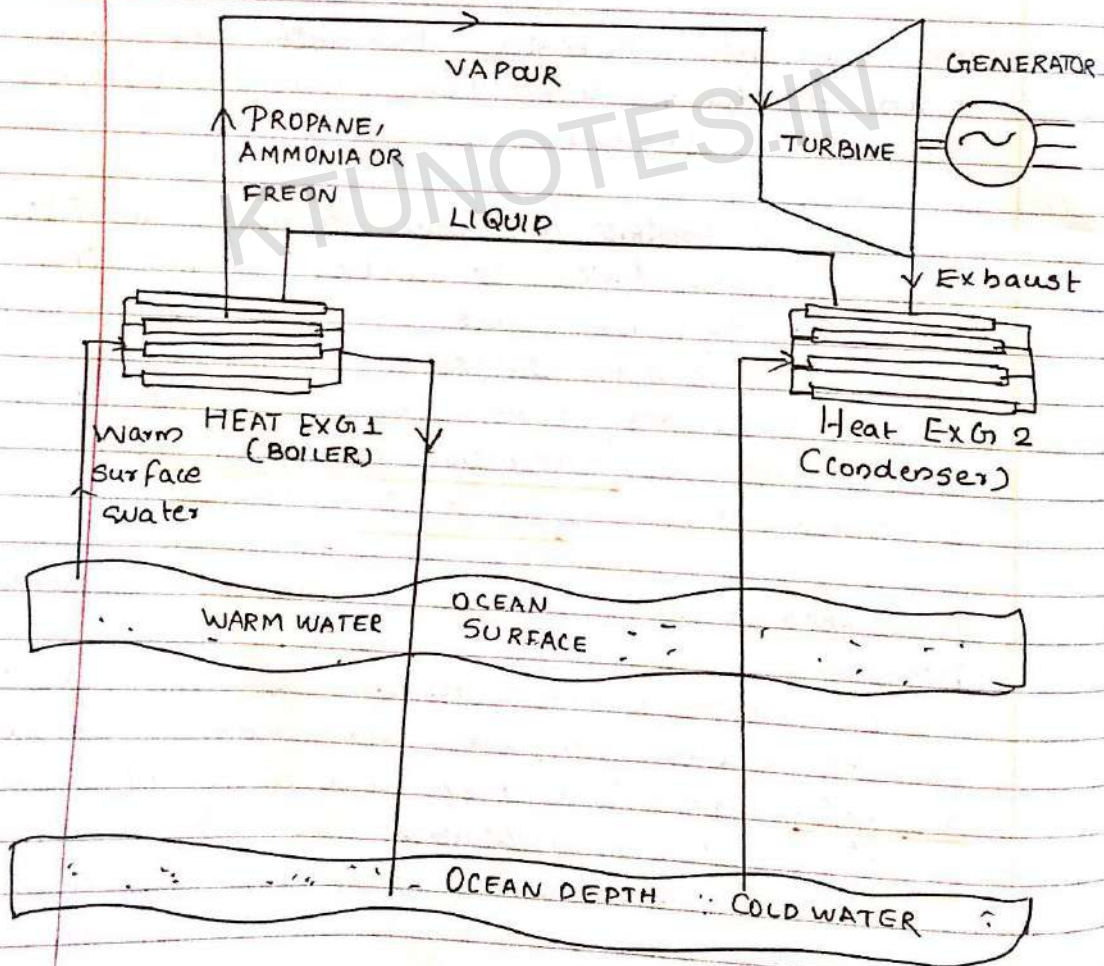 VAPOUR
GENERATOR
PROPANE,
AMMONIA OR
FREON
TURBINE
KTUNOTES.IN
LIQUID
Exhaust
HEAT EXG 1
(BOILER)
Warm
surface
water
Heat ExG 2
(Condenser)
WARM WATER
OCEAN
SURFACE
OCEAN DEPTH
COLD WATER